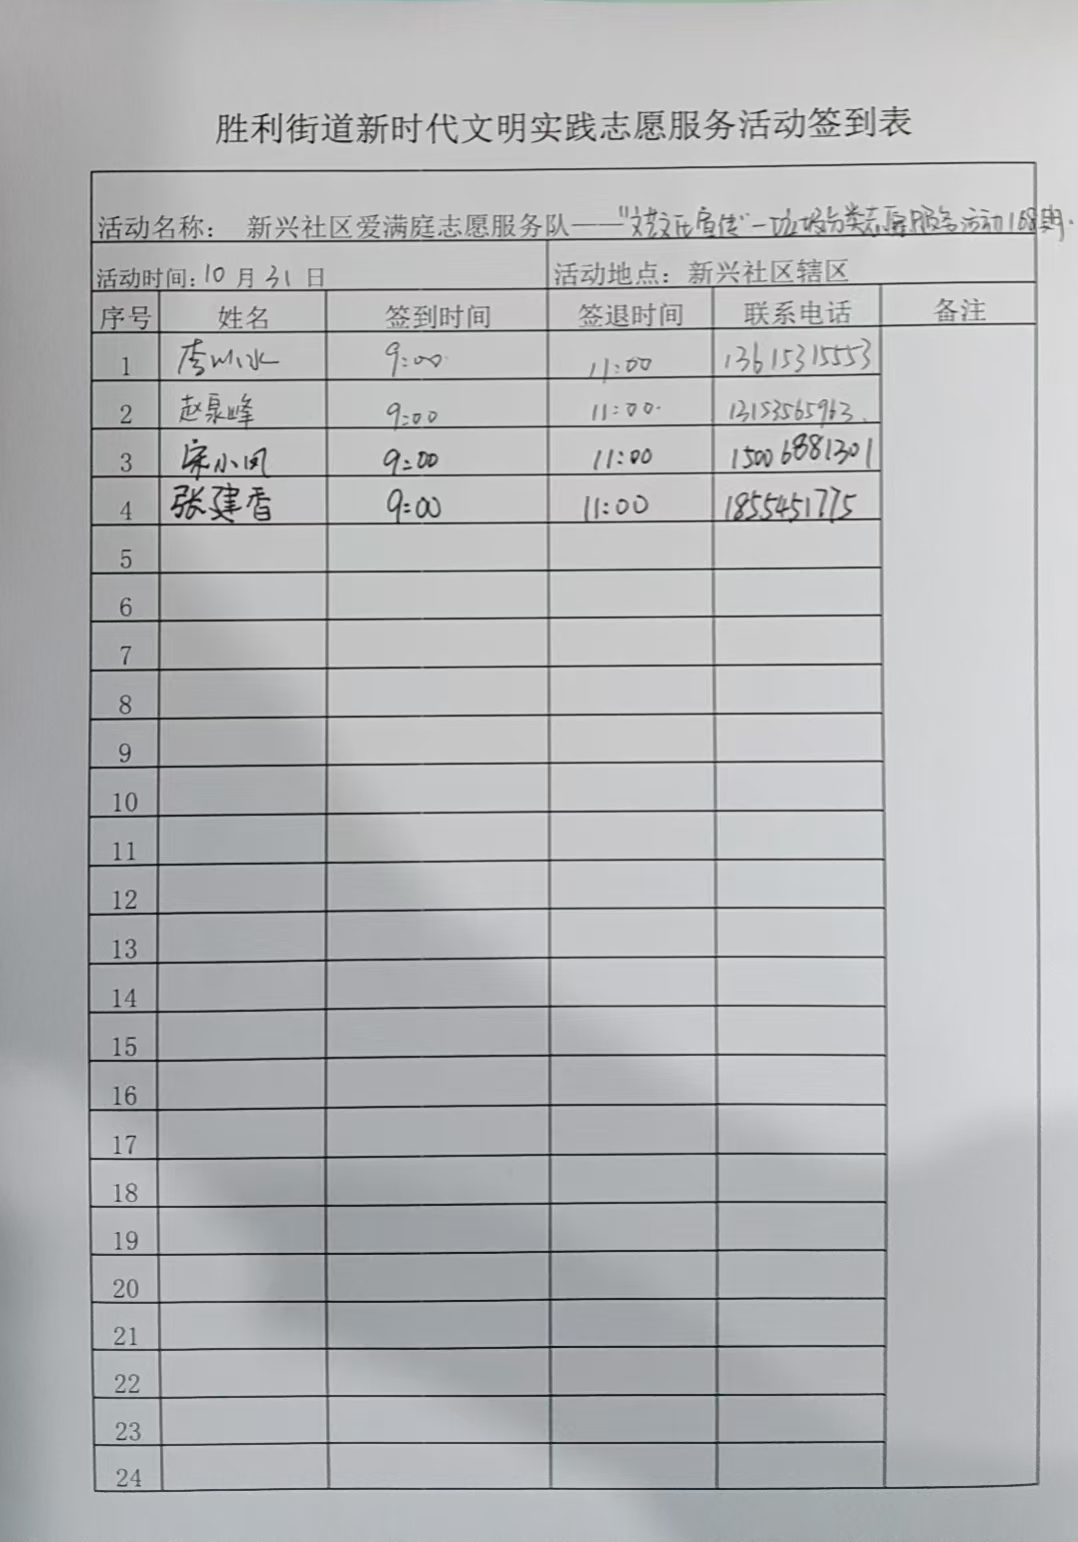 胜利街道新时代文明实践志愿服务活动签到表
活动名称: 新兴社区爱满庭志愿服务队——"文艺文化宣传"—垃圾分类志愿服务活动168期.
活动时间:10月31日 活动地点:新兴社区辖区
序号 姓名 签到时间 签退时间 联系电话 备注
1 9:00 11:00 13615315553
2 赵泉峰 9:00 11:00 13153565963
3 宋小凤 9:00 11:00 15006881301
4 张建香 9:00 11:00 1855451775
5
6
7
8
9
10
11
12
13
14
15
16
17
18
19
20
21
22
23
24